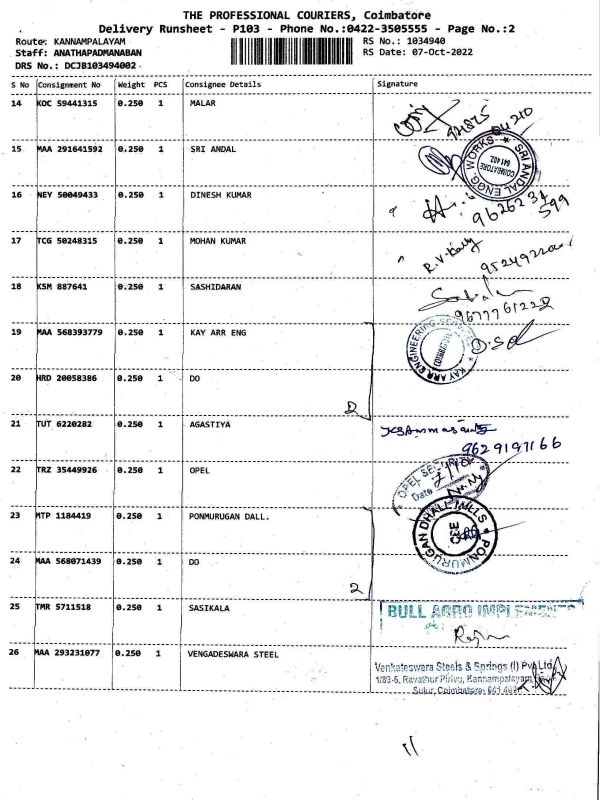 THE PROFESSIONAL COURIERS, Coimbatore
Delivery Runsheet - P103 - Phone No.:0422-3505555 - Page No.:2
Route: KANNAMPALAYAM RS No.: 1034940
Staff: ANATHAPADMANABAN RS Date: 07-Oct-2022
DRS No.: DCJB103494002
S No Consignment No Weight PCS Consignee Details Signature
14 KOC 59441315 0.250 1 MALAR
15 MAA 291641592 0.250 1 SRI ANDAL
SRI ANDAL ENGG. WORKS
COIMBATORE
641 402.
16 NEY 50049433 0.250 1 DINESH KUMAR
9626234
599
17 TCG 50248315 0.250 1 MOHAN KUMAR
18 KSM 887641 0.250 1 SASHIDARAN
9677761222
19 MAA 568393779 0.250 1 KAY ARR ENG
KAY ARR ENGINEERING
20 HRD 20058386 0.250 1 DO
2
21 TUT 6220282 0.250 1 AGASTIYA
9629197166
22 TRZ 35449926 0.250 1 OPEL
OPEL SECURITY
Date
23 MTP 1184419 0.250 1 PONMURUGAN DALL.
PONMURUGAN DHALL MILLS
CBE
24 MAA 568071439 0.250 1 DO
2
25 TMR 5711518 0.250 1 SASIKALA
BULL AGRO IMPLEMENTS
26 MAA 293231077 0.250 1 VENGADESWARA STEEL
Venkateswara Steels & Springs (I) Pvt Ltd.
1/89-6, Ravathur Pirivu, Kannampalayam
Sulur, Coimbatore- 641 402